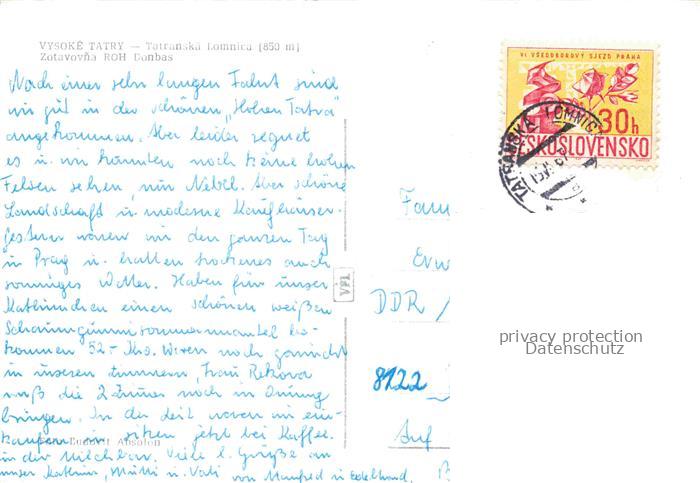 VYSOKÉ TATRY — Tatranská Lomnica [850 m]
Zotavovňa ROH Donbas
Nach einer sehr langen Fahrt sind
wir gut in der schönen „Hohen Tatra"
angekommen. Aber leider regnet
es u. wir konnten noch keine hohen
Felsen sehen, nur Nebel. Aber schöne
Landschaft u. moderne Kaufhäuser.
Gestern waren wir den ganzen Tag
in Prag u. hatten trockenes auch
sonniges Wetter. Haben für unser
Kathrinchen einen schönen weißen
Schaumgummisommermantel be-
kommen 52,- Kcs. Waren noch
in unseren Zimmern, Frau
muß die 2 Zimmer noch in Ordnung
bringen. In der Zeit waren wir ein-
kaufen u. sitzen jetzt bei Kaffee
Absolon
in der Milchbar. Viele l. Grüße an
unser Kathrin, Mutti u. Vati von Manfred u. Edeltraud.
VFL
VI. VŠEODBOROVÝ SJEZD PRAHA
30h
ČESKOSLOVENSKO
TATRANSKÁ LOMNICA
Fam
Erw
DDR /
8122
Auf
privacy protection
Datenschutz